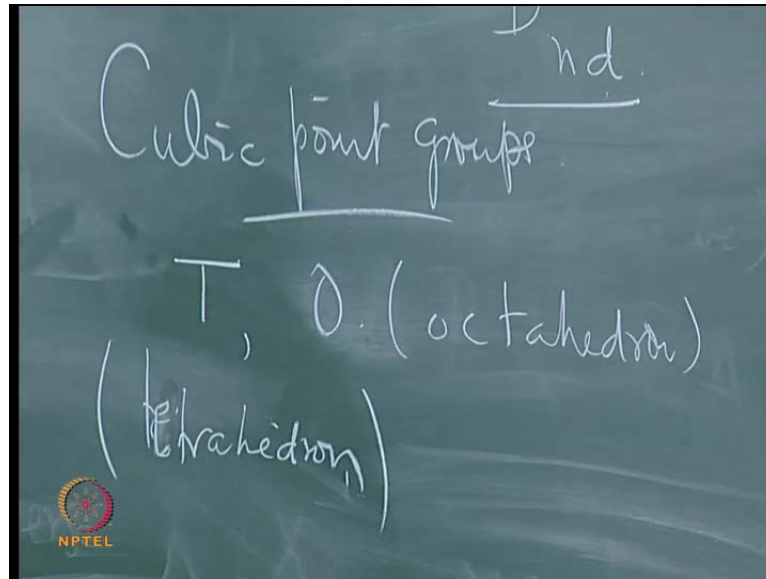 Dnd.
Cubic point groups.
T, O. (octahedron)
(tetrahedron)
NPTEL